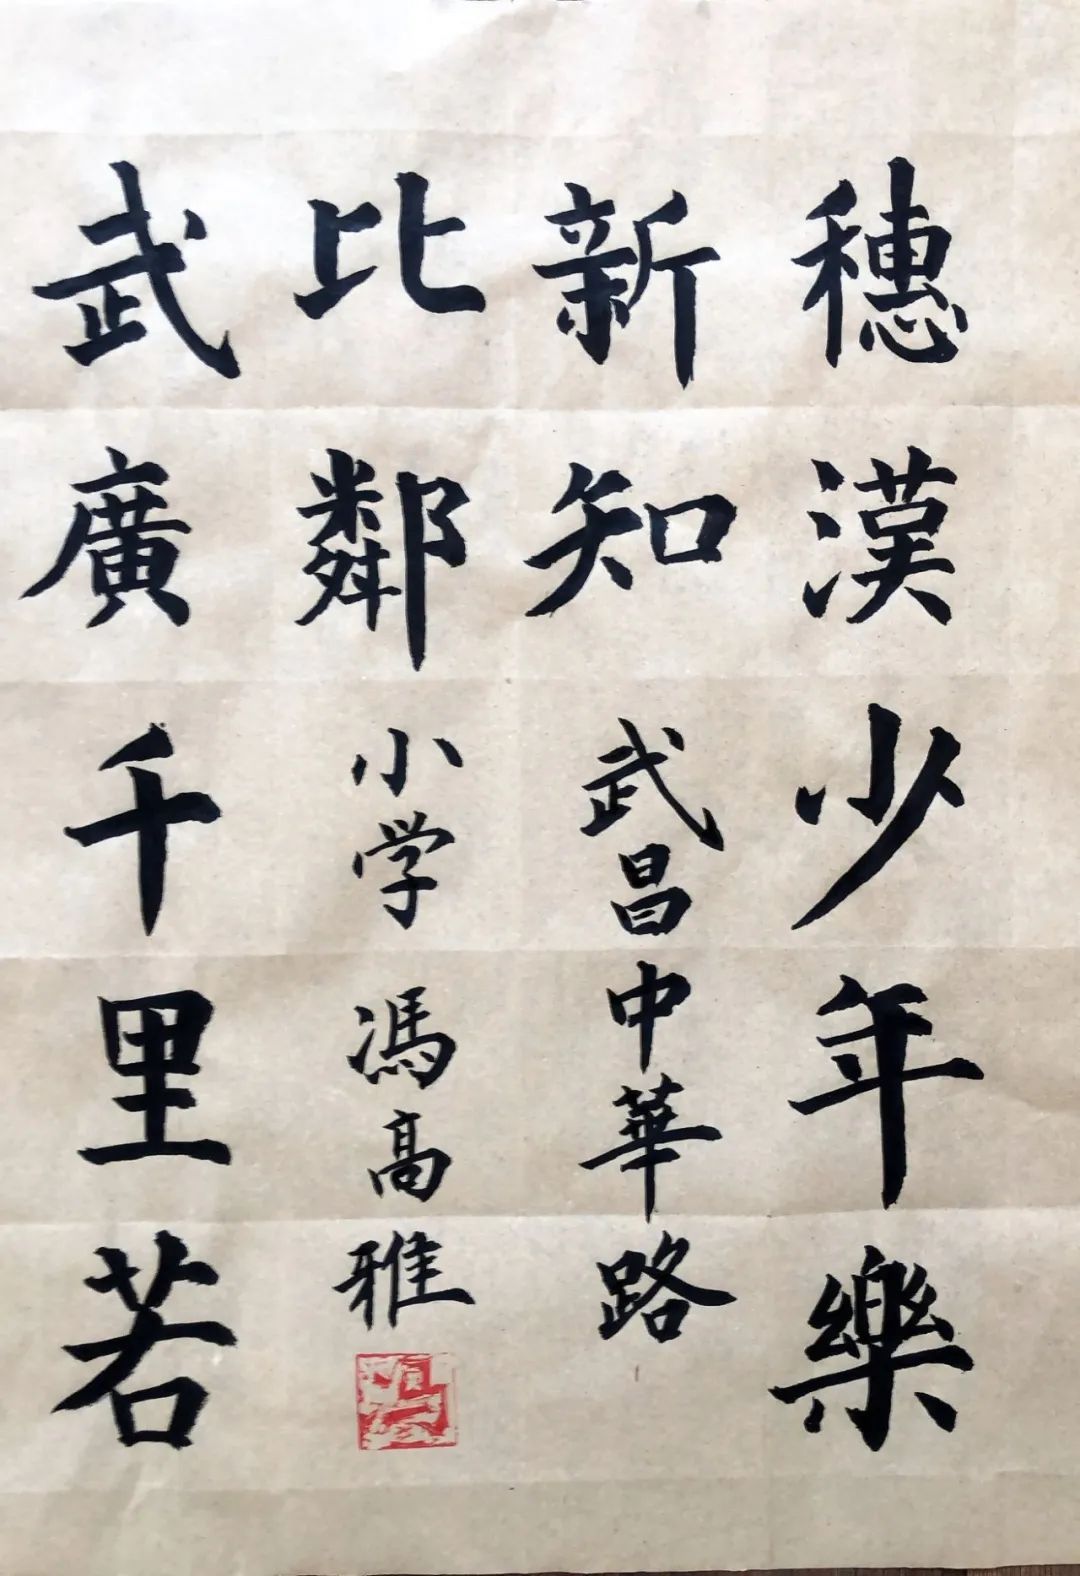 穗漢少年樂
新知
武廣千里若
比鄰
武昌中華路
小学馮高雅